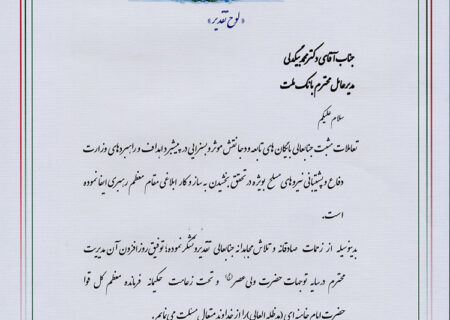 « لوح تقدیر »
جناب آقای دکتر محمد بیگدلی
مدیرعامل محترم بانک ملت
سلام علیکم
تعاملات مثبت جنابعالی با یگان های تابعه ودجا نقش موثر و بسزایی در پیشبرد اهداف و راهبردهای وزارت
دفاع و پشتیبانی نیروهای مسلح بویژه در تحقق بخشیدن به ساز و کار ابلاغی مقام معظم رهبری ایفا نموده
است.
بدینوسیله از زحمات صادقانه و تلاش مجاهدانه جنابعالی تقدیر و تشکر نموده؛ توفیق روز افزون آن مدیریت
محترم در سایه توجهات حضرت ولی عصر (عج) و تحت زعامت حکیمانه فرمانده معظم کل قوا
حضرت امام خامنه ای (مدظله العالی) را از خداوند متعال مسئلت می نمایم.